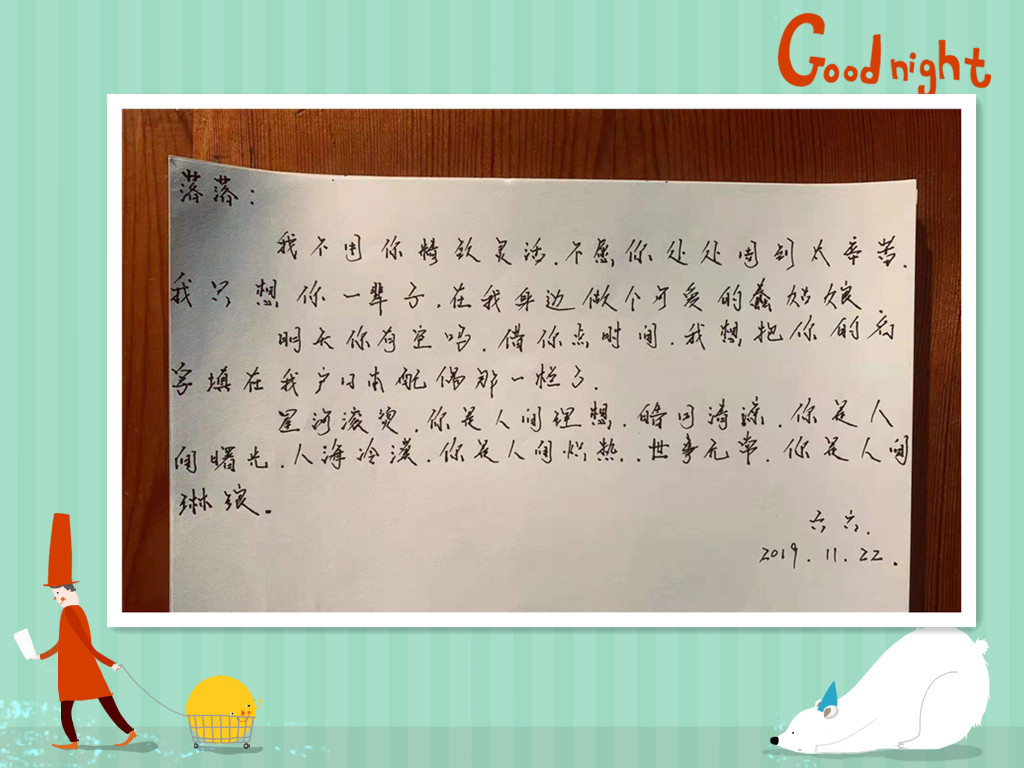 Good night
落落：
我不图你精致灵活.不愿你处处周到太辛苦.
我只想你一辈子.在我身边做个可爱的蠢姑娘.
明天你有空吗.借你点时间.我想把你的名
字填在我户口本配偶那一栏了.
星河滚烫.你是人间理想.皓月清凉.你是人
间曙光.人海冷漠.你是人间炽热..世事无常.你是人间
琳琅。
六六.
2019.11.22.